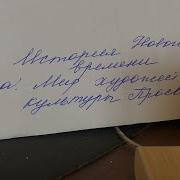 История Нового
времени
а: Мир художес
культуры Прос